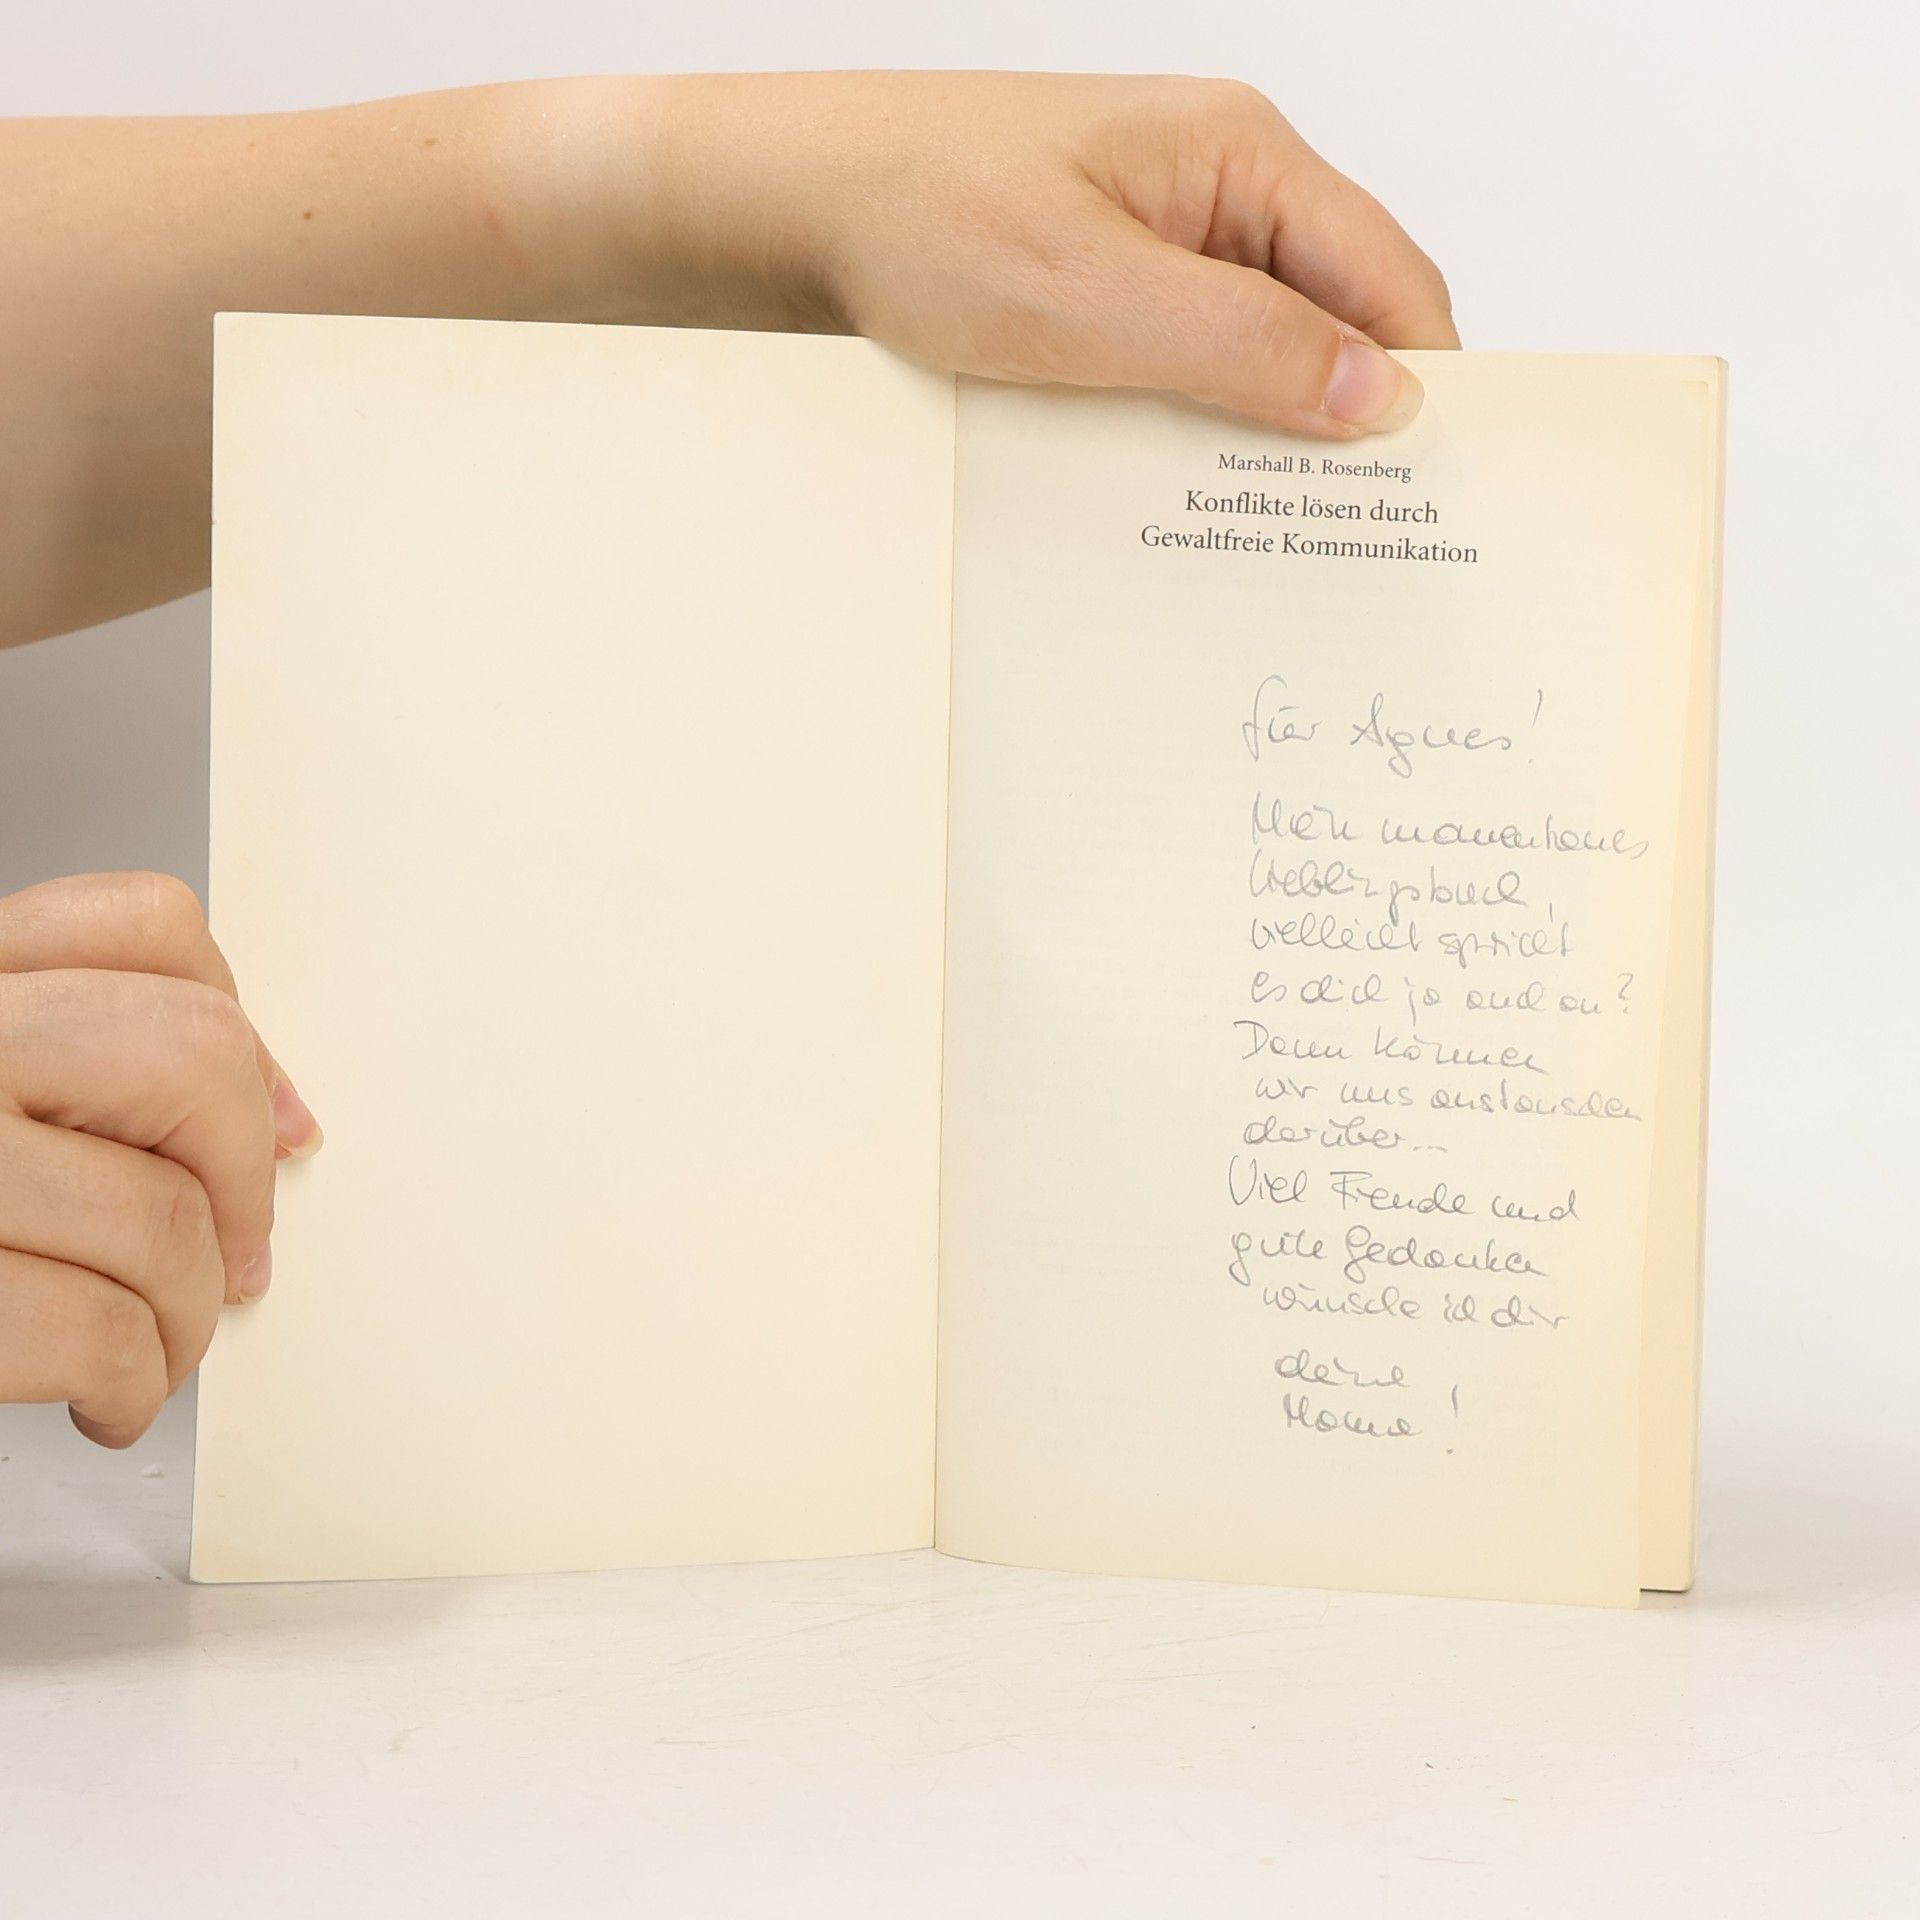 Marshall B. Rosenberg
Konflikte lösen durch
Gewaltfreie Kommunikation
für Agnes!
Mein momentanes
Lieblingsbuch,
vielleicht spricht
es dich ja auch an?
Dann können
wir uns austauschen
darüber...
Viel Freude und
gute Gedanken
wünsche ich dir
deine
Mama!